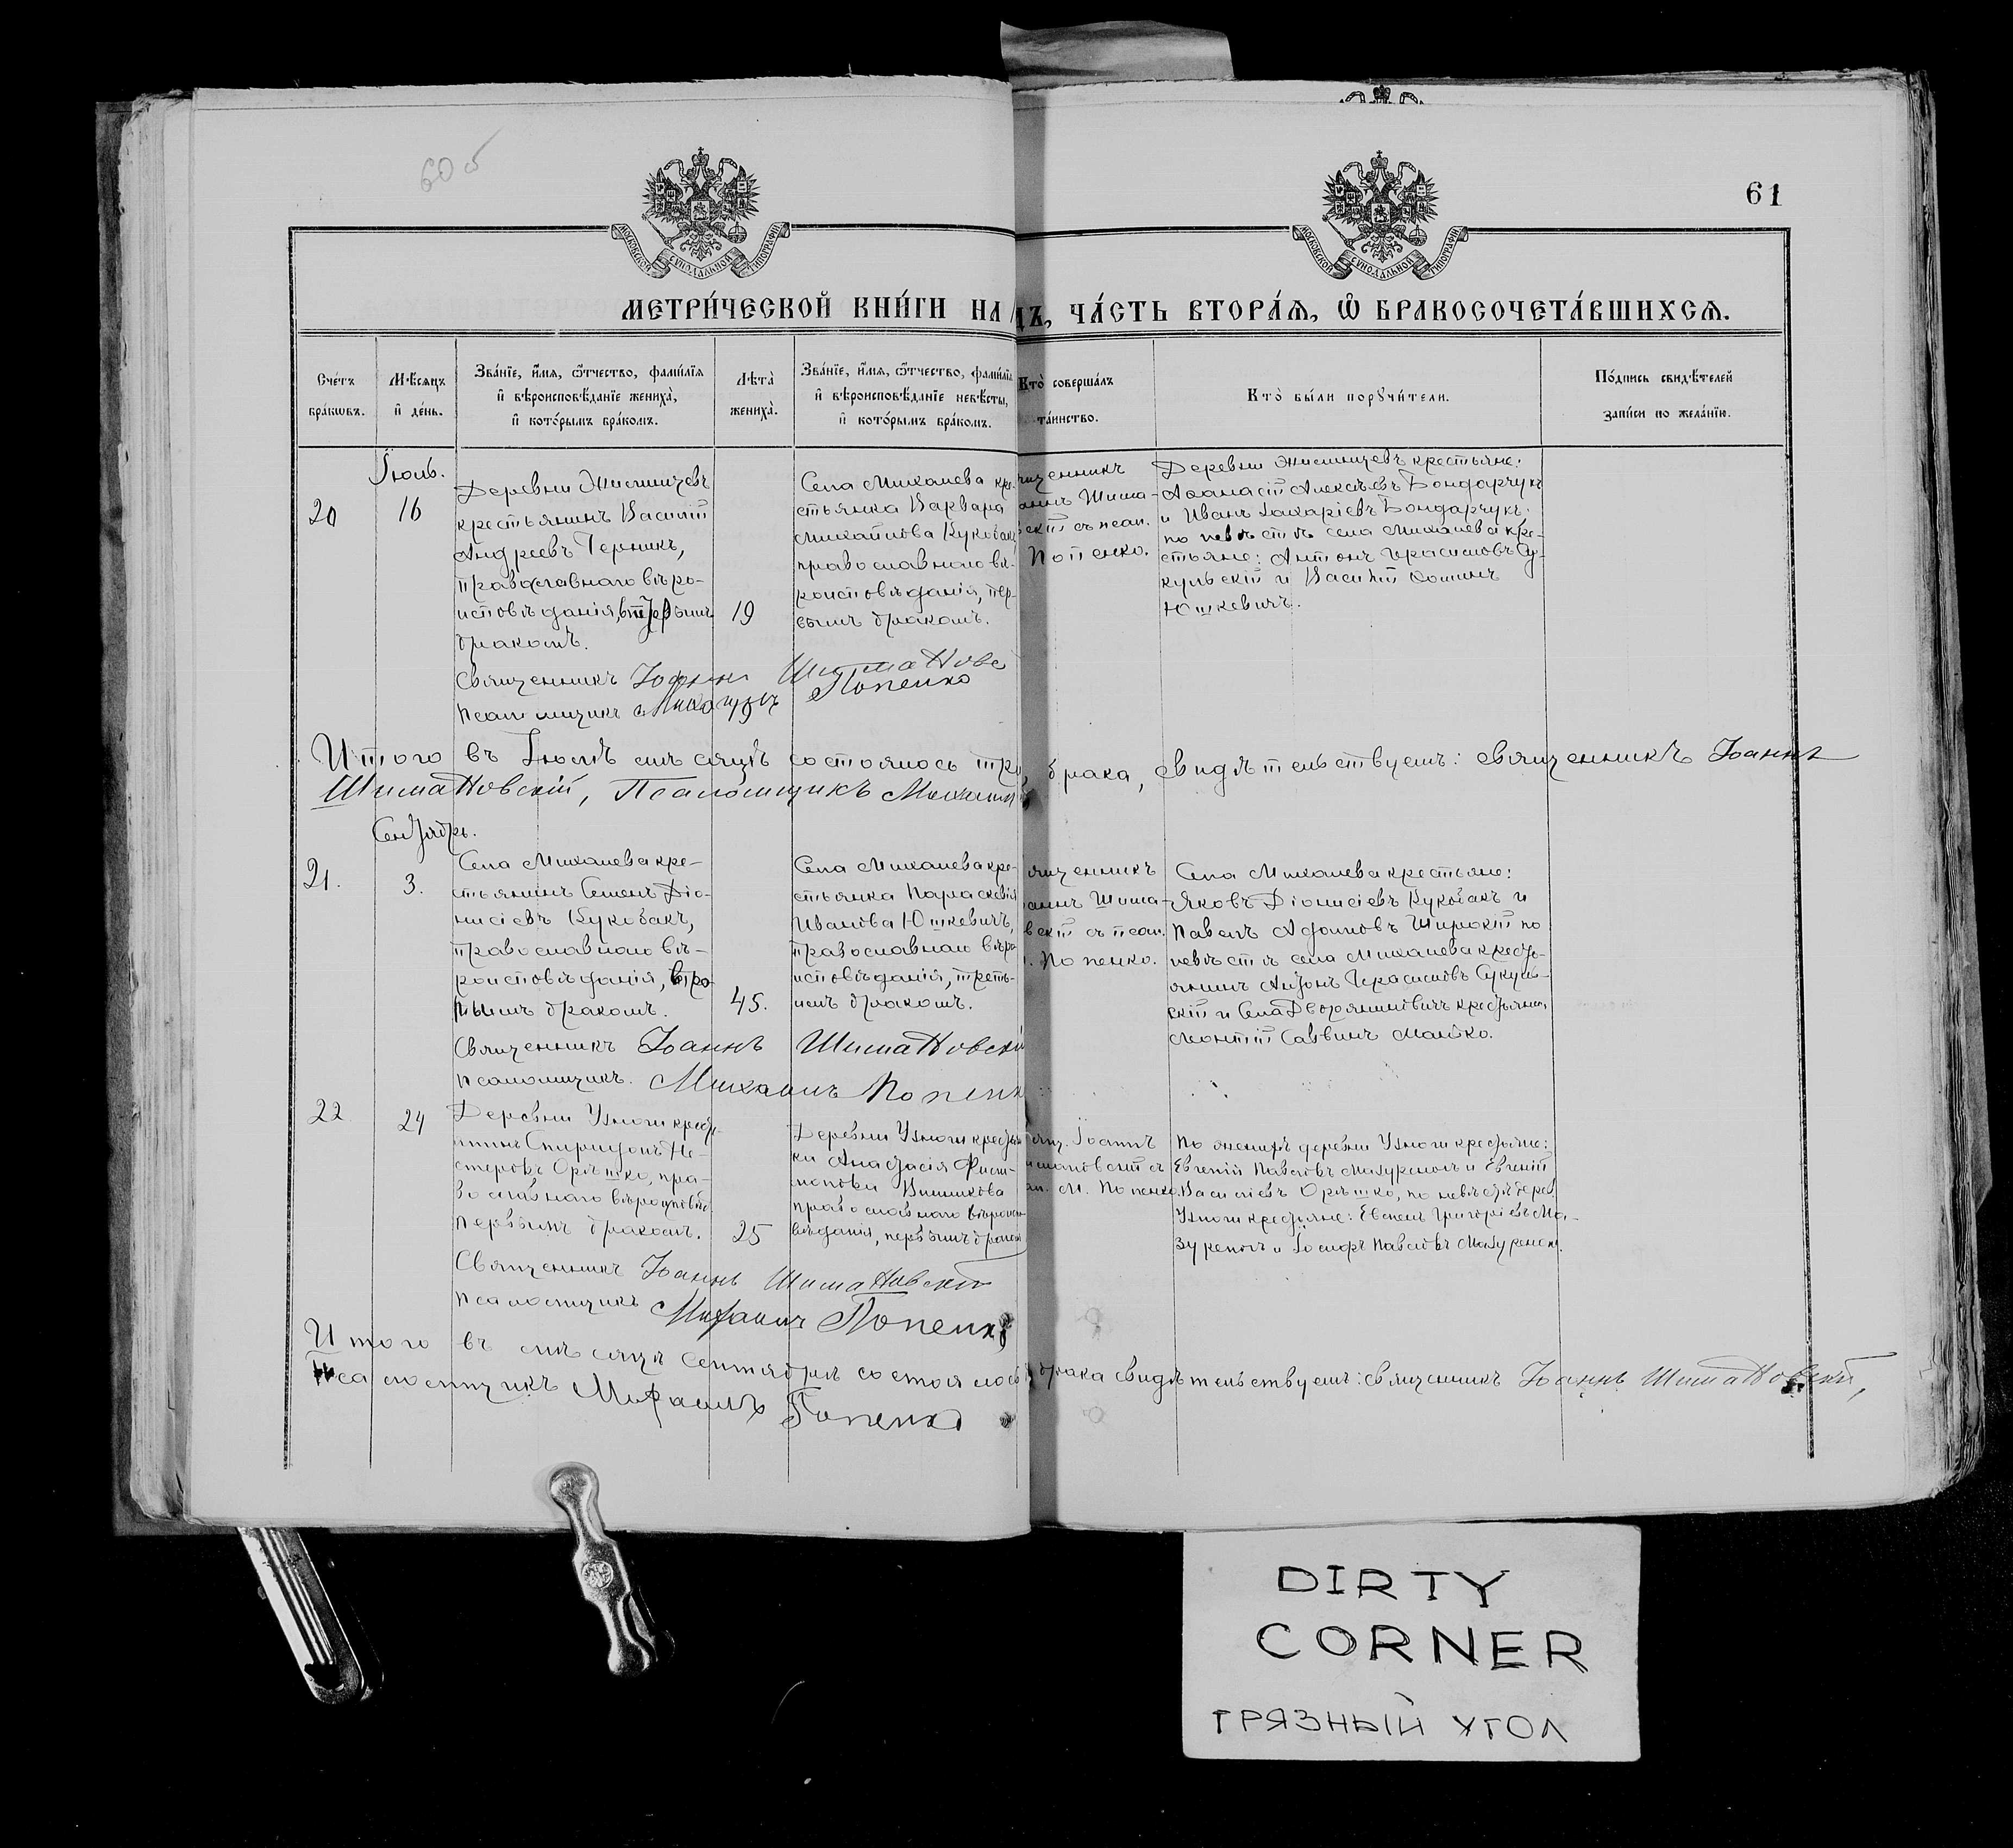 60 б
61
МОСКОВСКОЙ СѴНОДАЛЬНОЙ ТИПОГРАФІИ
МОСКОВСКОЙ СѴНОДАЛЬНОЙ ТИПОГРАФІИ
МЕТРИ́ЧЕСКОЙ КНИ́ГИ НА
ДЪ, ЧА́СТЬ ВТОРА́Я, Ѿ БРАКОСОЧЕТА́ВШИХСЯ.
Сче́тъ
бра́ковъ.
Мѣ́сяцъ
и҆ де́нь.
Зва́нїе, и҆́мя, ѻ҆́тчество, фами́лїя
и҆ вѣроисповѣ́данїе жениха̀,
и҆ кото́рымъ бра́комъ.
Лѣта̀
жениха̀.
Зва́нїе, и҆́мя, ѻ҆́тчество, фами́лїя
и҆ вѣроисповѣ́данїе невѣ́сты,
и҆ кото́рымъ бра́комъ.
Кто̀ соверша́лъ
та́инство.
Кто̀ бы́ли порꙋчи́тели.
По́дпись свидѣ́телей
за́писи по жела́нїю.
Іюль.
20
16
Деревни
крестьянинъ Василій
Андреевъ Терникъ,
православнаго вѣро-
исповѣданія, вторымъ
бракомъ.
19
Села Михалева кре-
стьянка Варвара
Михайлова Кукобакъ,
православнаго вѣ-
роисповѣданія, пер-
вымъ бракомъ.
щенникъ
аннъ Шима-
вскій съ псал.
Попенко.
Деревни крестьяне:
Аѳанасій Алексѣевъ Бондарчукъ
и Иванъ Захаріевъ Бондарчукъ;
по невѣстѣ села Михалева кре-
стьяне: Антонъ Герасимовъ Су-
кульскій и Василій Ѳоминъ
Юшкевичъ.
Священникъ Іоаннъ Шимановс
Псаломщикъ Михаилъ Попенко
Итого въ Іюлѣ мѣсяцѣ состоялось три брака, свидѣтельствуемъ: священникъ Іоаннъ
Шимановскій, Псаломщикъ Михаил
Сентябрь.
21.
3.
Села Михалева кре-
стьянинъ Семенъ Діо-
нисіевъ Кукобакъ,
православнаго вѣ-
роисповѣданія, вто-
рымъ бракомъ.
45.
Села Михалева кре-
стьянка Параскевія
Иванова Юшкевичъ,
православнаго вѣро-
исповѣданія, треть-
имъ бракомъ.
ященникъ
аннъ Шима-
вскій съ псал.
. Попенко.
Села Михалева крестьяне:
Яковъ Діонисіевъ Кукобакъ и
Павелъ Адамовъ Широкій по
невѣстѣ села Михалева кресть-
янинъ Антонъ Герасимовъ Сукуль-
скій и Села Дворяниновичъ крестьянин
Саввинъ Малко.
Священникъ Іоаннъ Шимановскій
Псаломщикъ. Михаилъ Попенк
22
24
Деревни Узноги кресть-
янинъ Спиридонъ Не-
стеровъ Орѣшко, пра-
вославнаго вѣроисповѣд.
первымъ бракомъ.
25
Деревни Узноги крестьян
ка Анастасія Фили-
монова Вишнкова
православнаго вѣроиспо-
вѣданія, первымъ браком
ящ. Іоаннъ
имановскій съ
ал. М. Попенко.
По женихѣ деревни Узноги крестьяне:
Евгеній Павловъ Мазуренокъ и Евгеній
Василіевъ Орѣшко, по невѣстѣ дерев.
Узноги крестьяне: Григоріевъ Ма-
зуренокъ и Іосифъ Павловъ Мазуренок.
Священникъ Іоаннъ Шимановскій
Псаломщикъ Михаилъ Попенко
Итого въ мѣсяцѣ Сентябрѣ состоялось брака свидѣтельствуемъ: священникъ Іоаннъ Шимановскій,
Псаломщикъ Михаилъ Попенко
DIRTY
CORNER
ГРЯЗНЫЙ УГОЛ